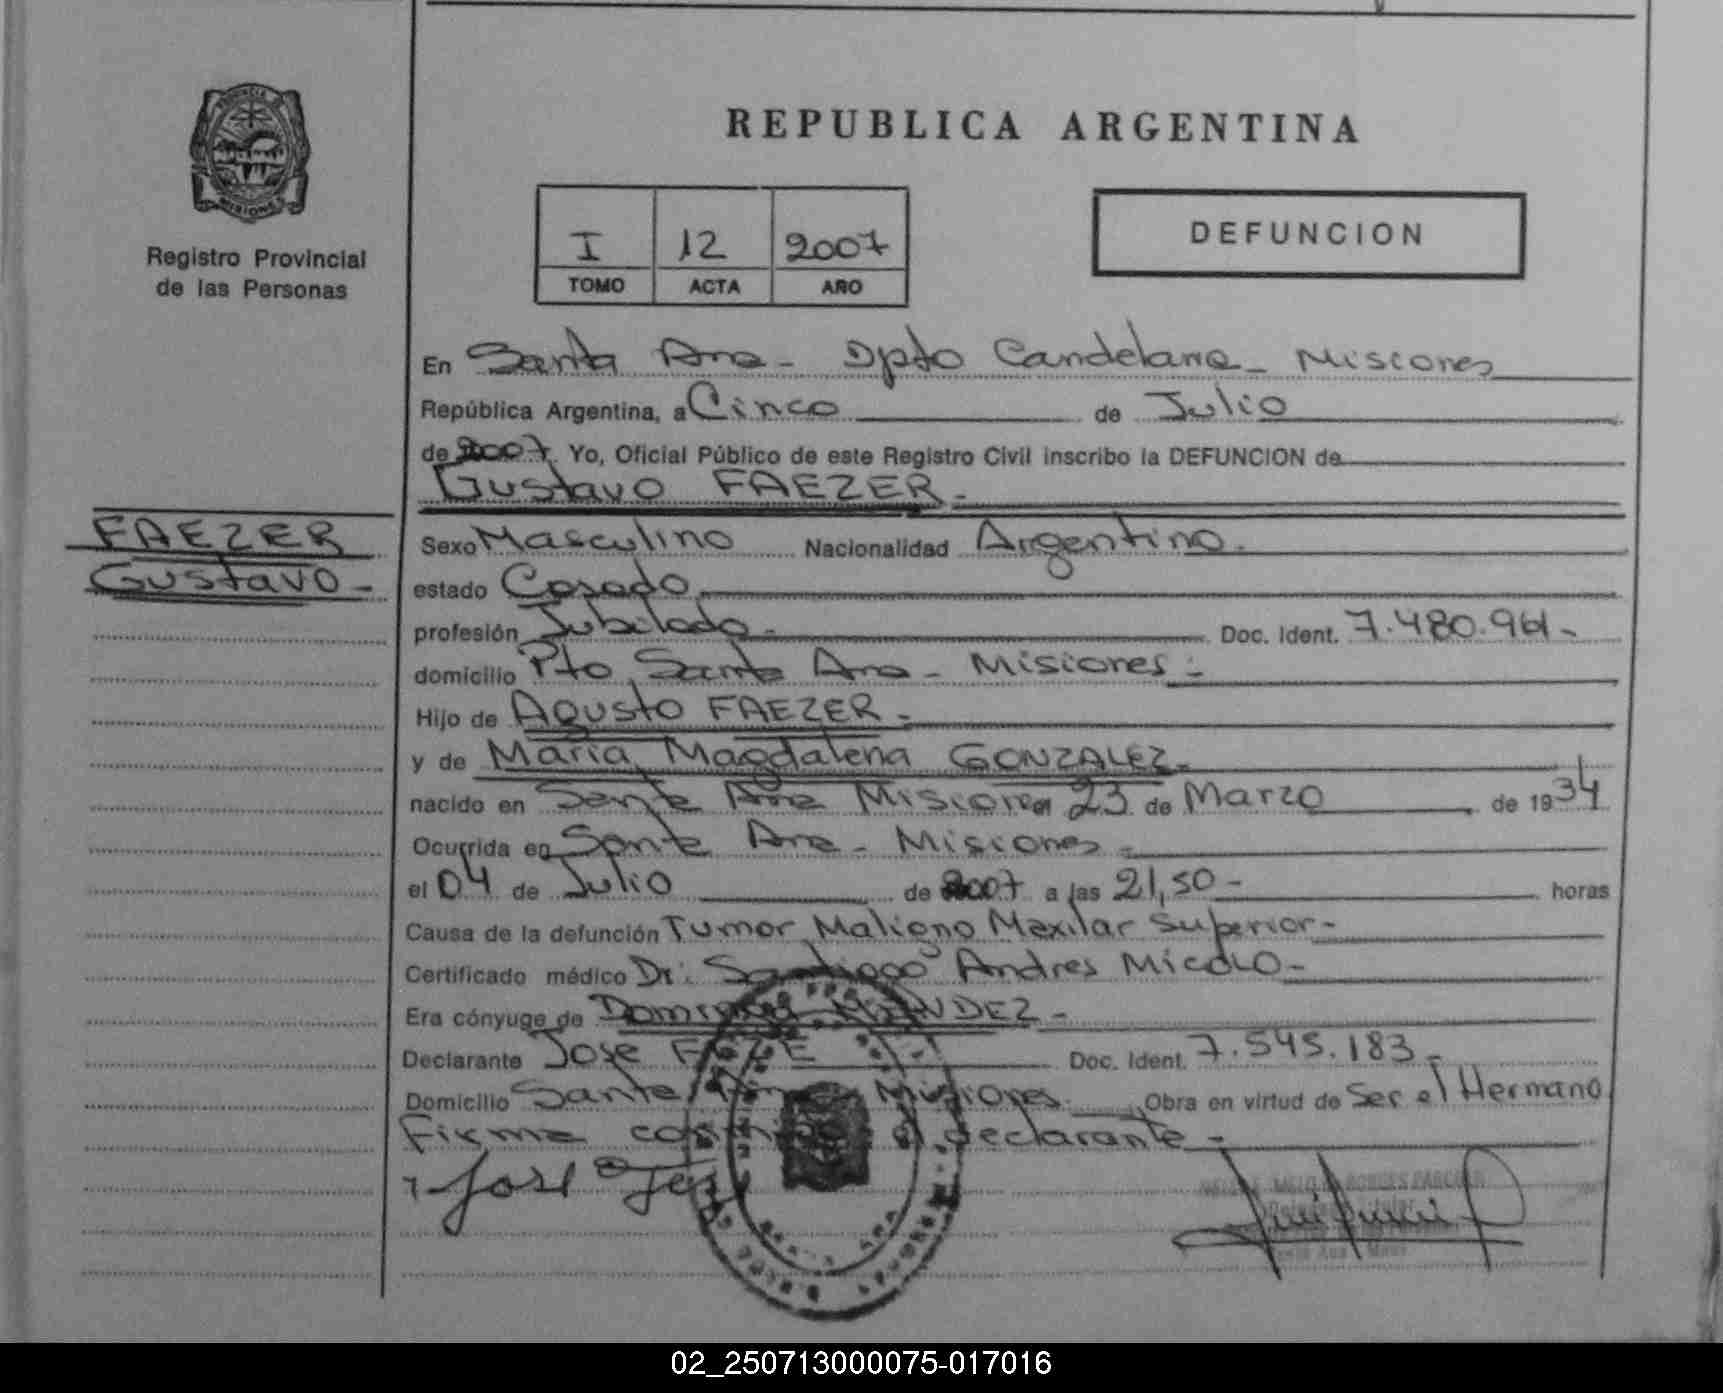 REPUBLICA ARGENTINA
PROVINCIA DE
MISIONES
Registro Provincial
de las Personas
I 12 2007
TOMO ACTA AÑO
DEFUNCION
En Santa Ana - Dpto Candelaria - Misiones
República Argentina, a Cinco de Julio
de 2007. Yo, Oficial Público de este Registro Civil inscribo la DEFUNCION de
Gustavo FAEZER.-
FAEZER
Gustavo -
Sexo Masculino Nacionalidad Argentino.
estado Casado
profesión Jubilado.- Doc. Ident. 7.480.961.-
domicilio Pto Santa Ana - Misiones.-
Hijo de Agusto FAEZER.-
y de María Magdalena GONZALEZ.-
nacido en Santa Ana Misiones el 23 de Marzo de 1934
Ocurrida en Santa Ana - Misiones -
el 04 de Julio de 2007 a las 21,50 - horas
Causa de la defunción Tumor Maligno Maxilar Superior -
Certificado médico Dr: Santiago Andres Micolo -
Era cónyuge de Dominga MENDEZ -
Declarante Jose Doc. Ident. 7.545.183 -
Domicilio Santa Ana Misiones Obra en virtud de Ser el Hermano
Firma conmigo el declarante -
Jose
02_250713000075-017016